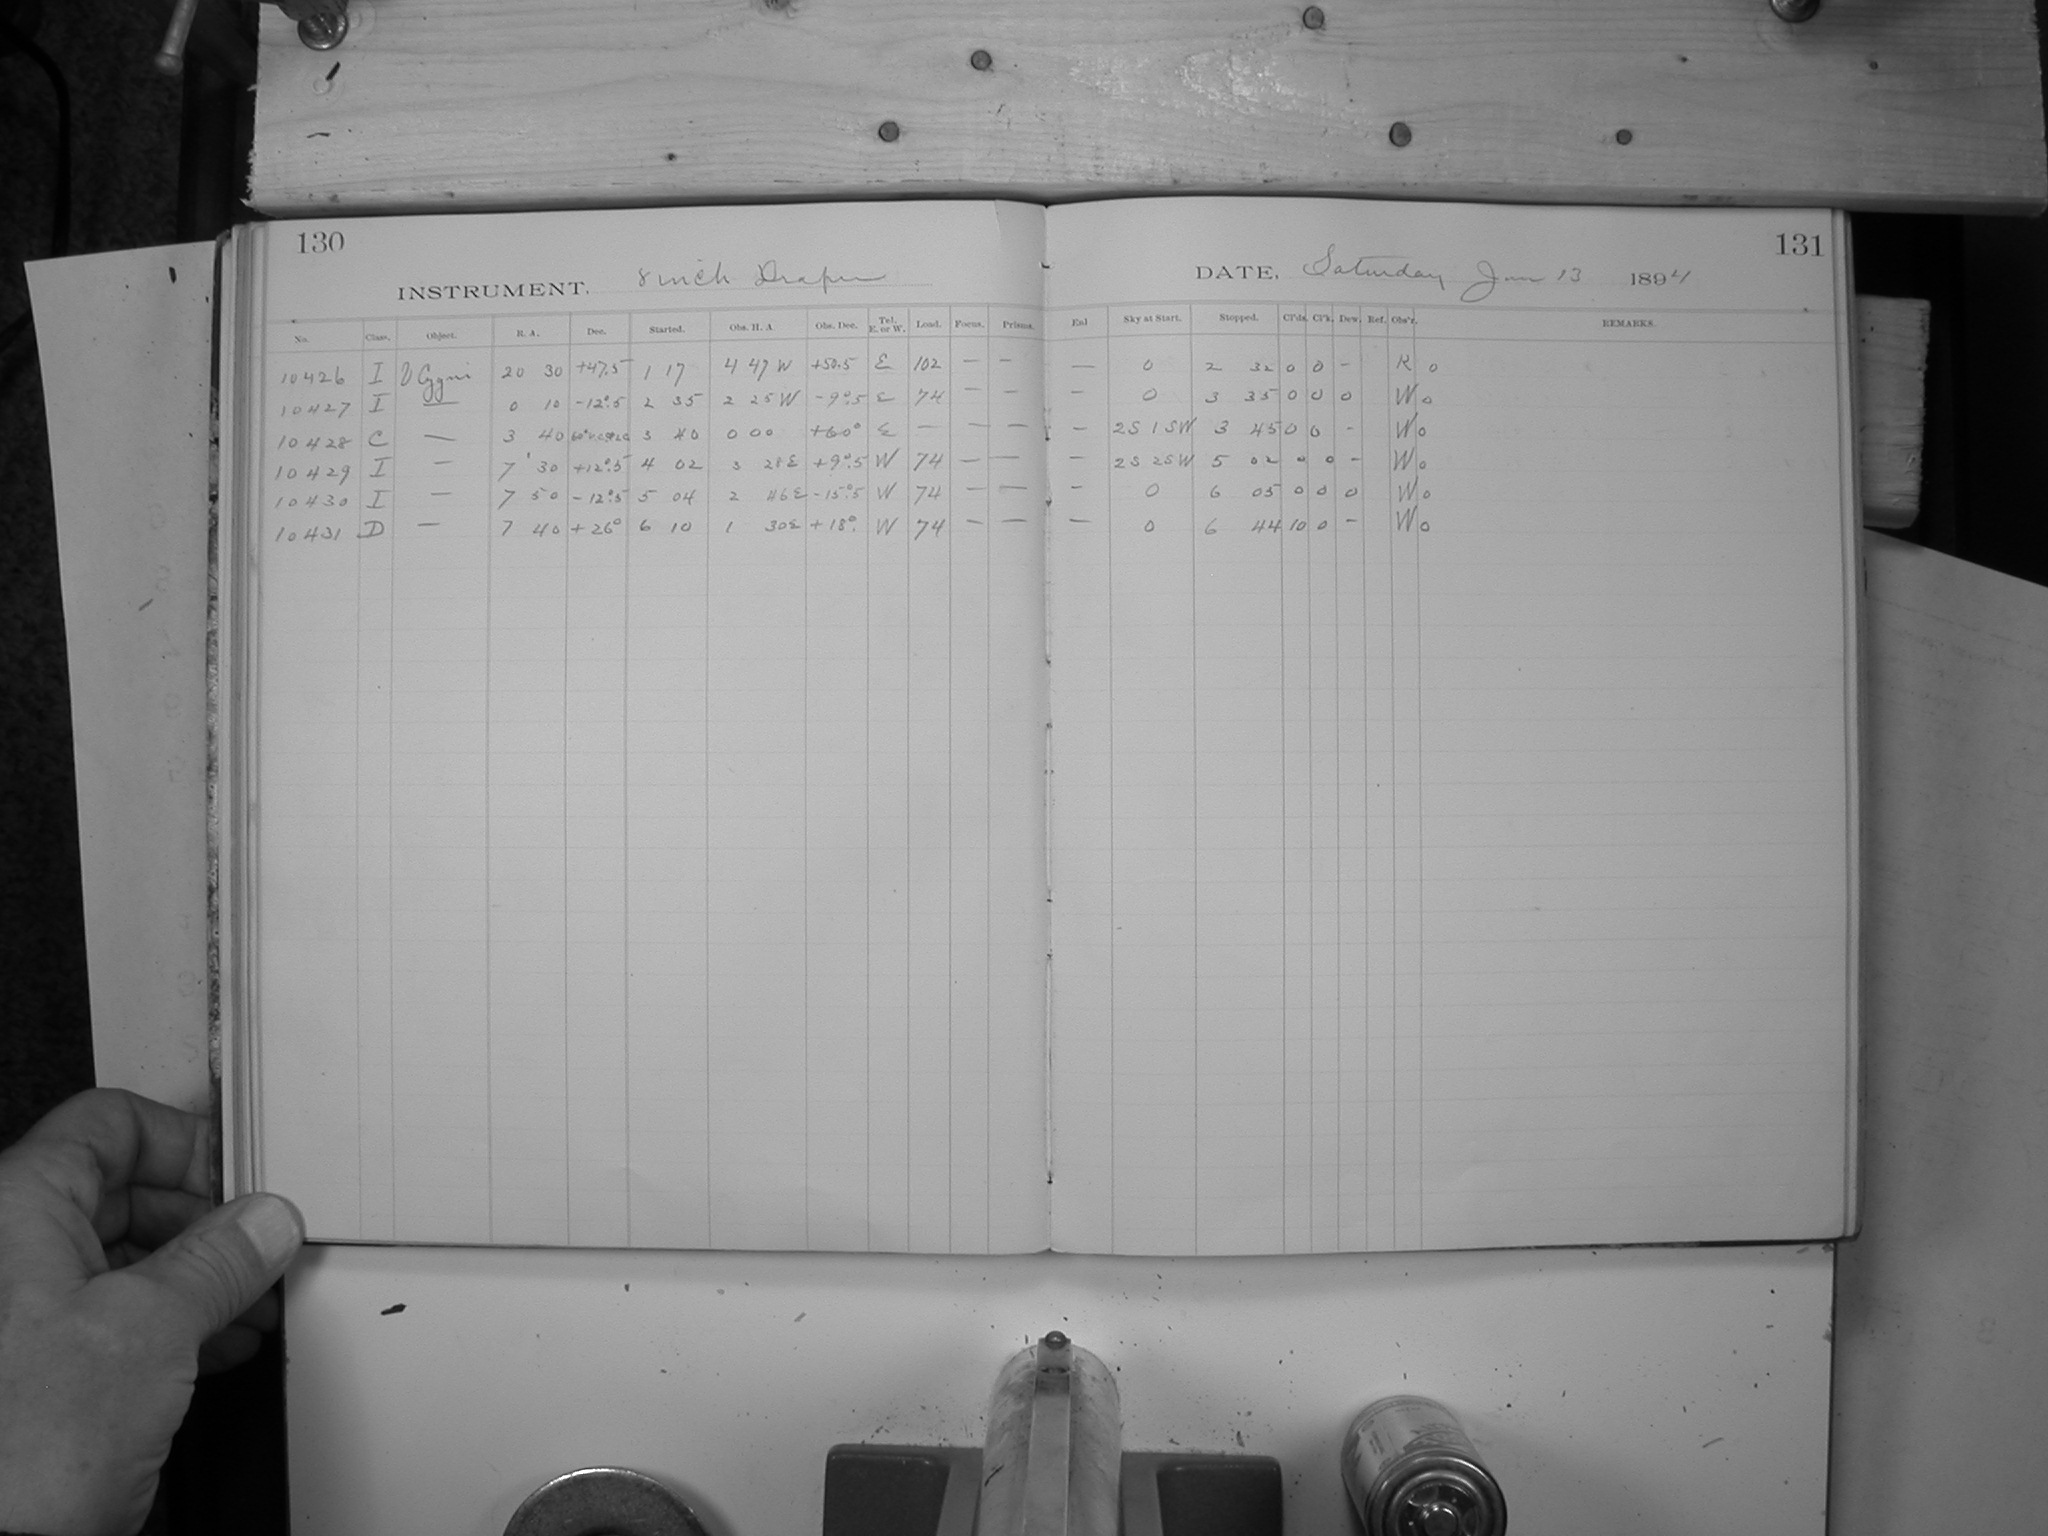 130
INSTRUMENT. 8 inch Draper
No. Class. Object. R. A. Dec. Started. Obs. H. A. Obs. Dec. Tel. E. or W. Load. Focus. Prisms.
10426 I U Cygni 20 30 +47.5 1 17 4 47 W +50.5 E 102 — —
10427 I — 0 10 -12°.5 2 35 2 25 W -9°.5 E 74 — —
10428 C — 3 40 3 40 0 00 +60° E — — —
10429 I — 7 30 +12°.5 4 02 3 28 E +9°.5 W 74 — —
10430 I — 7 50 -12°.5 5 04 2 46 E -15°.5 W 74 — —
10431 D — 7 40 +26° 6 10 1 30 E +18°. W 74 — —
131
DATE, Saturday Jan 13 1894
Enl Sky at Start. Stopped. Cl'ds. Cl'k. Dew. Ref. Obs'r. REMARKS.
— 0 2 32 0 0 - R 0
— 0 3 35 0 0 0 W 0
— 2S 1SW 3 45 0 0 - W 0
— 2S 2SW 5 02 0 0 - W 0
— 0 6 05 0 0 0 W 0
— 0 6 44 10 0 - W 0